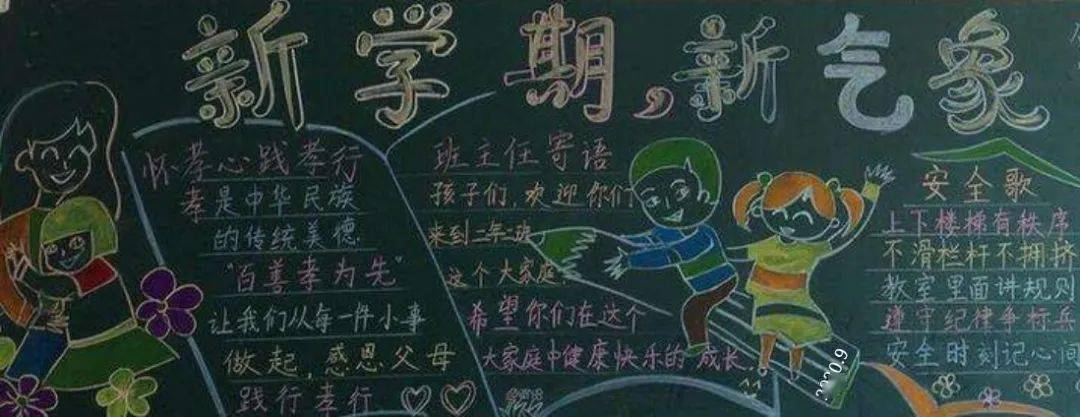 新学期,新气象
怀孝心践孝行
孝是中华民族
的传统美德
"百善孝为先"
让我们从每一件小事
做起,感恩父母
践行孝行
班主任寄语
孩子们,欢迎你们
来到二年二班
这个大家庭.
希望你们在这个
大家庭中健康快乐的成长.
安全歌
上下楼梯有秩序
不滑栏杆不拥挤
教室里面讲规则
遵守纪律争标兵
安全时刻记心间